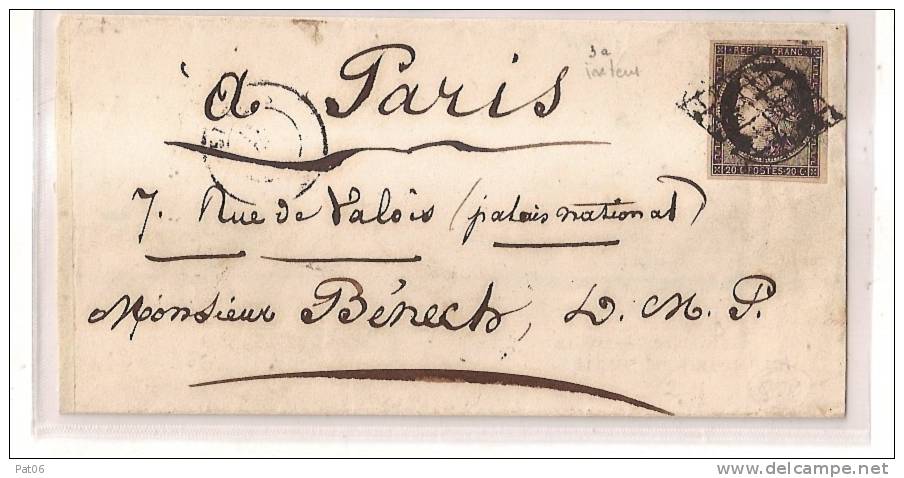 3a
à Paris
REPUB. FRANC.
20 C. POSTES. 20 C.
7. Rue de Valois (palais national)
Monsieur Bénech, D. M. P.
Pat06
http://www.delcampe.net